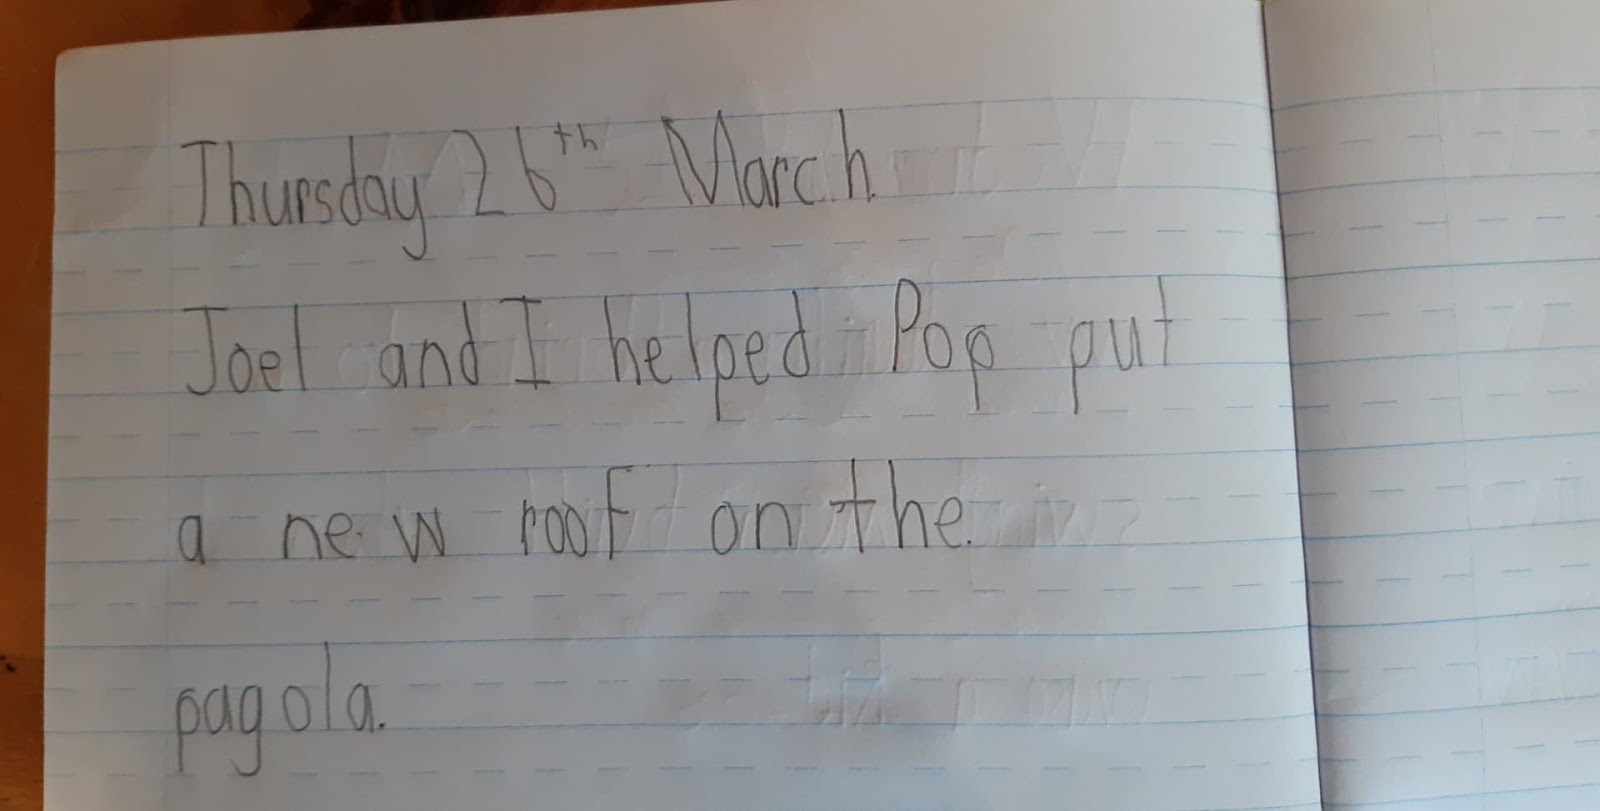 Thursday 26th March.
Joel and I helped Pop put
a new roof on the.
pagola.